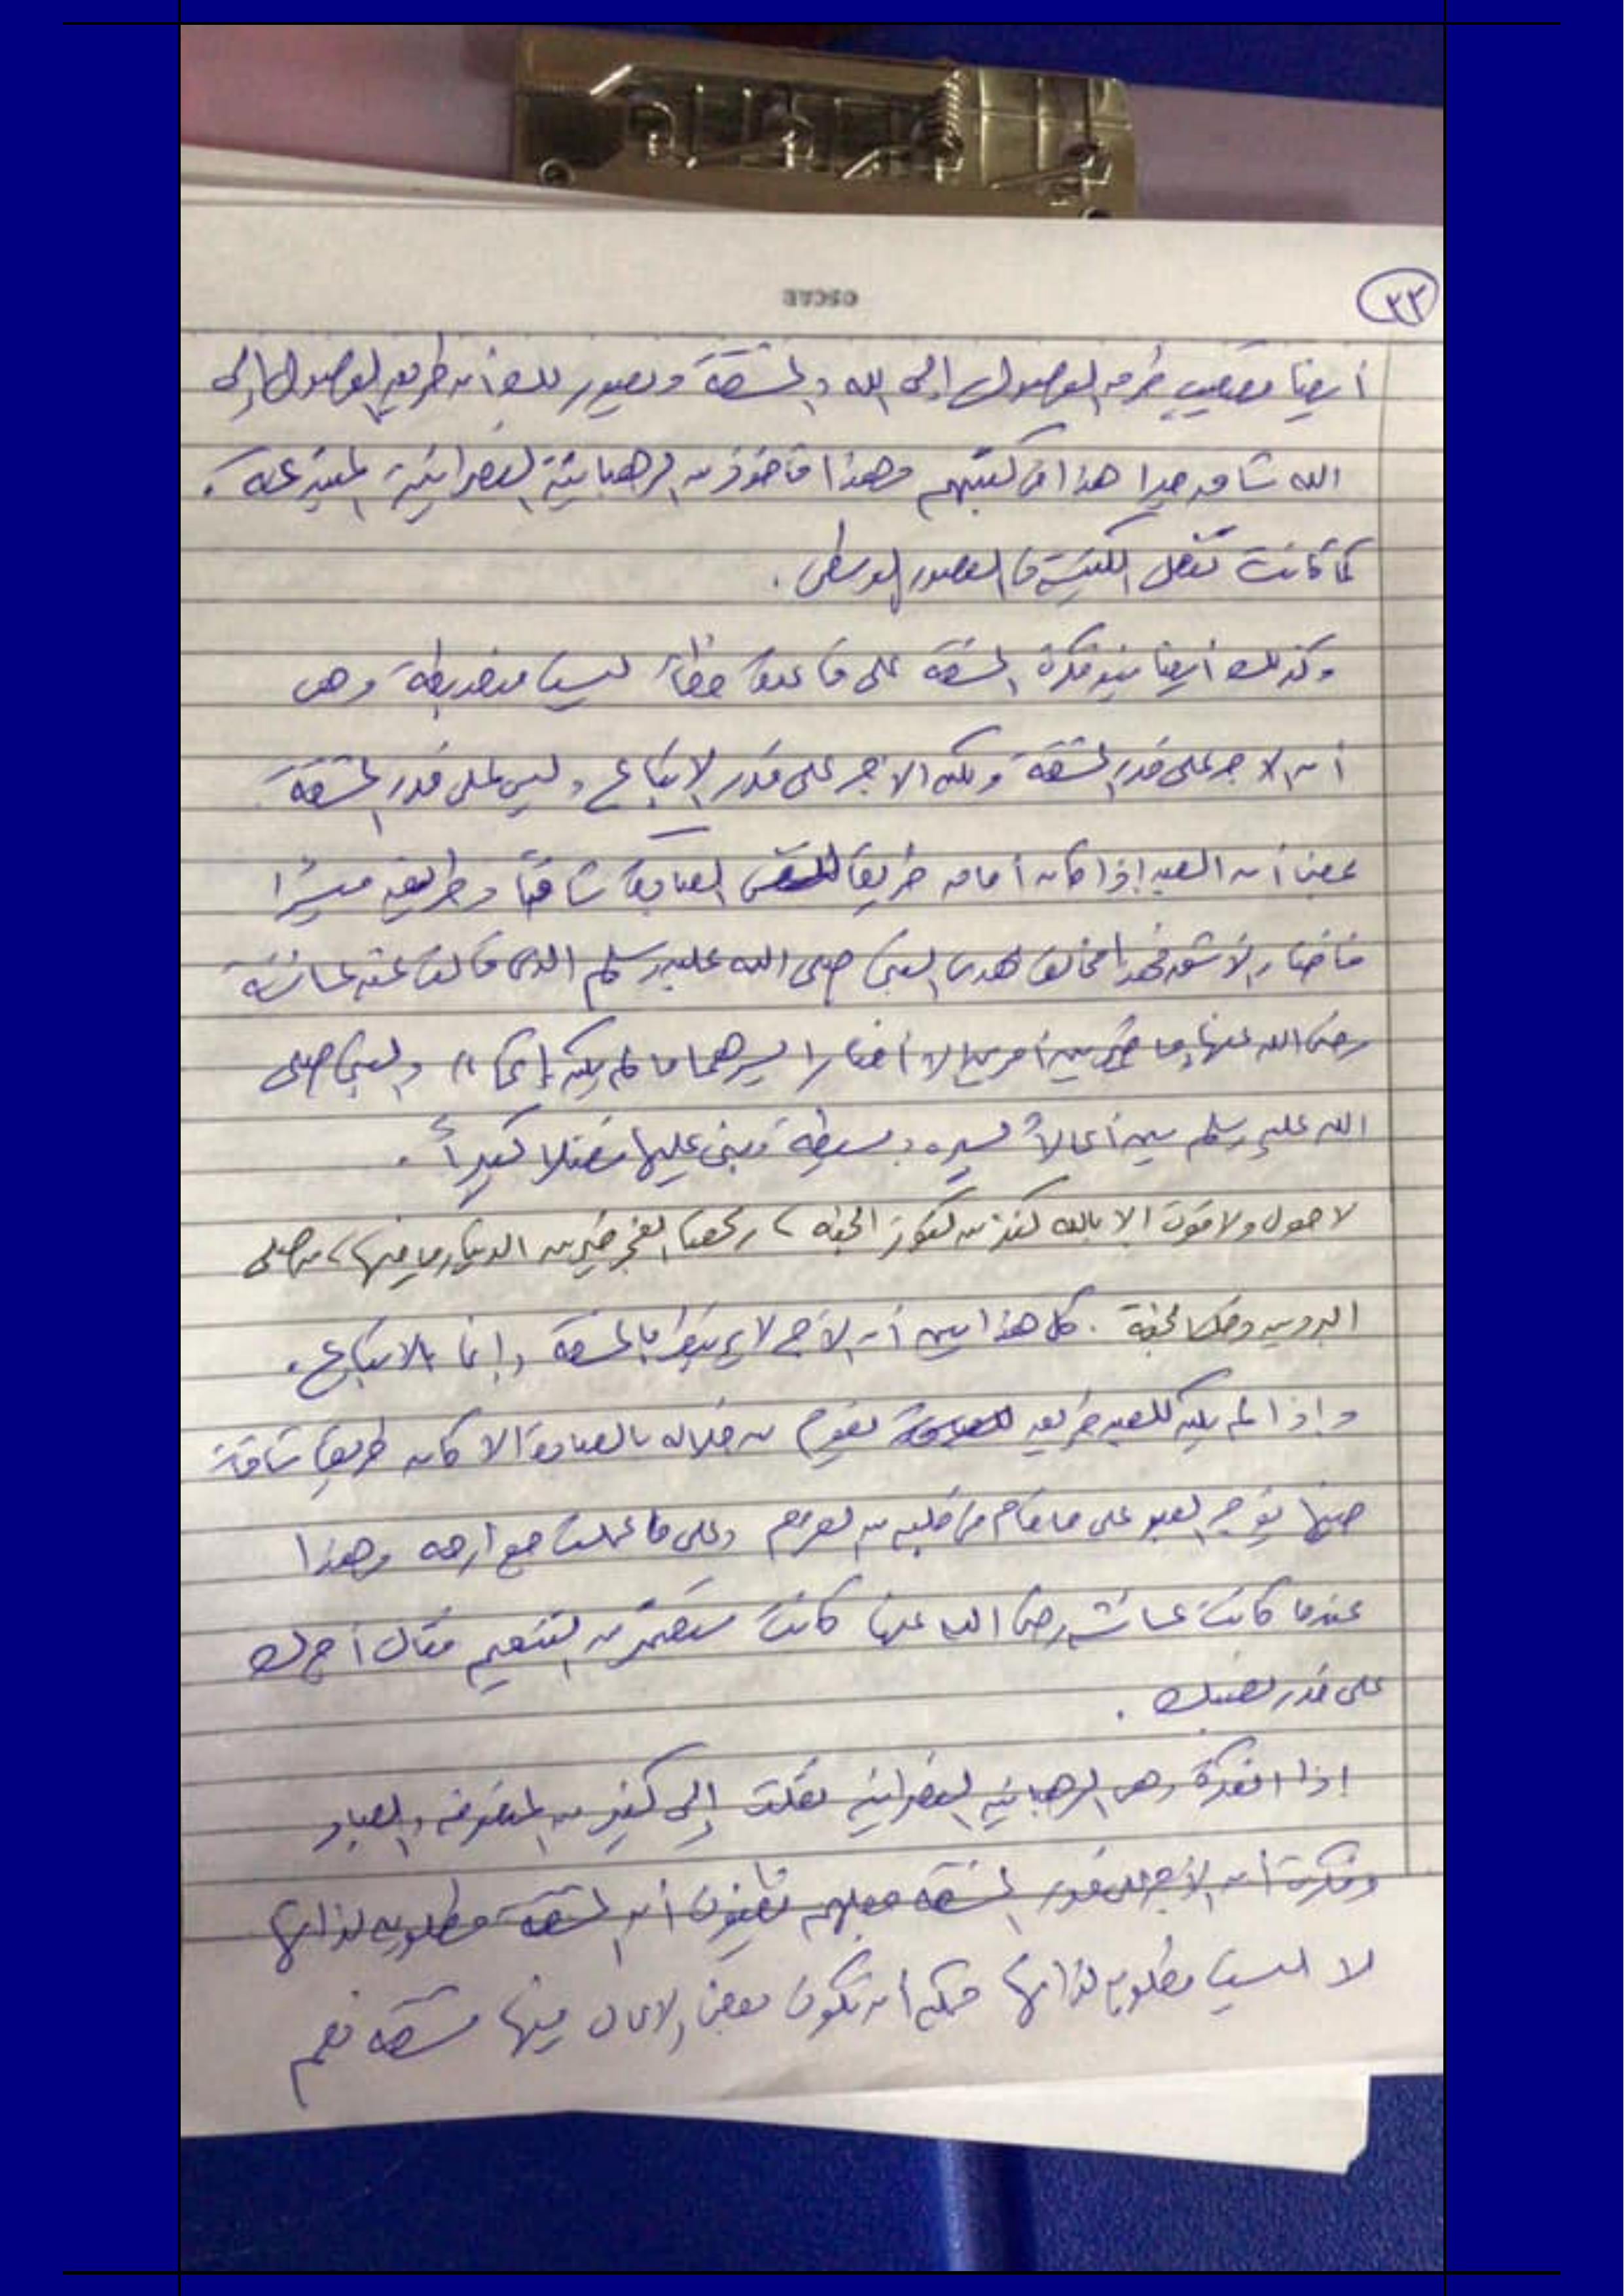 ٣٣
أيضا تصعيب طرق الوصول إلى الله والمشقة وتصور لك أن طريق الوصول إلى
الله شاق جدا هذا في كتبهم وهذا مأخوذ من الرهبانية النصرانية المبتدعة .
كما كانت تفعل الكنيسة في العصور الوسطى .
وكذلك أيضا بنو فكرة المشقة على قاعدة خطأ ليست منضبطة وهى
أن الأجر على قدر المشقة ولكن الأجر على قدر الاتباع وليس على قدر المشقة
بمعنى أن العبد إذا كان أمامه طريقا لنفس العبادة شاقا وطريق ميسرا
فاختار الأشق فهذا مخالف لهدى النبي صلى الله عليه وسلم الذى قالت عنه عائشة
رضى الله عنها ما خير بين أمرين إلا أختار أيسرهما ما لم يكن إثما )) والنبي صلى
الله عليه وسلم بين أعمالاً يسيره وبسيطة وبنى عليها فضلا كبيراً .
لا حول ولا قوة إلا بالله كنز من كنوز الجنه ، ركعتا الفجر خير من الدنيا وما فيها ، من صلى
البردين دخل الجنة . كل هذا يبين أن الأجر لا يرتبط بالمشقة وإنما بالاتباع .
وإذا لم يكن للعبد طريق يقوم من خلاله بالعبادة الا كان طريق شاقة
حينها يؤجر العبد على ما قام في قلبه من العزم وعلى ما عملت جوارحه وهذا
عندما كانت عائشة رضى الله عنها كانت ستعتمر من التنعيم فقال أجرك
على قدر نصبك .
إذا الفكرة وهى الرهبانيه النصرانيه نقلت إلى كثير من المتصوفه والعباد
وفكرة أن الأجر على قدر المشقه جعلهم يظنون أن المشقة مطلوبه لذاتها
لا ليست مطلوبه لذاتها ممكن أن تكون بعض الأعمال فيها مشقه نعم